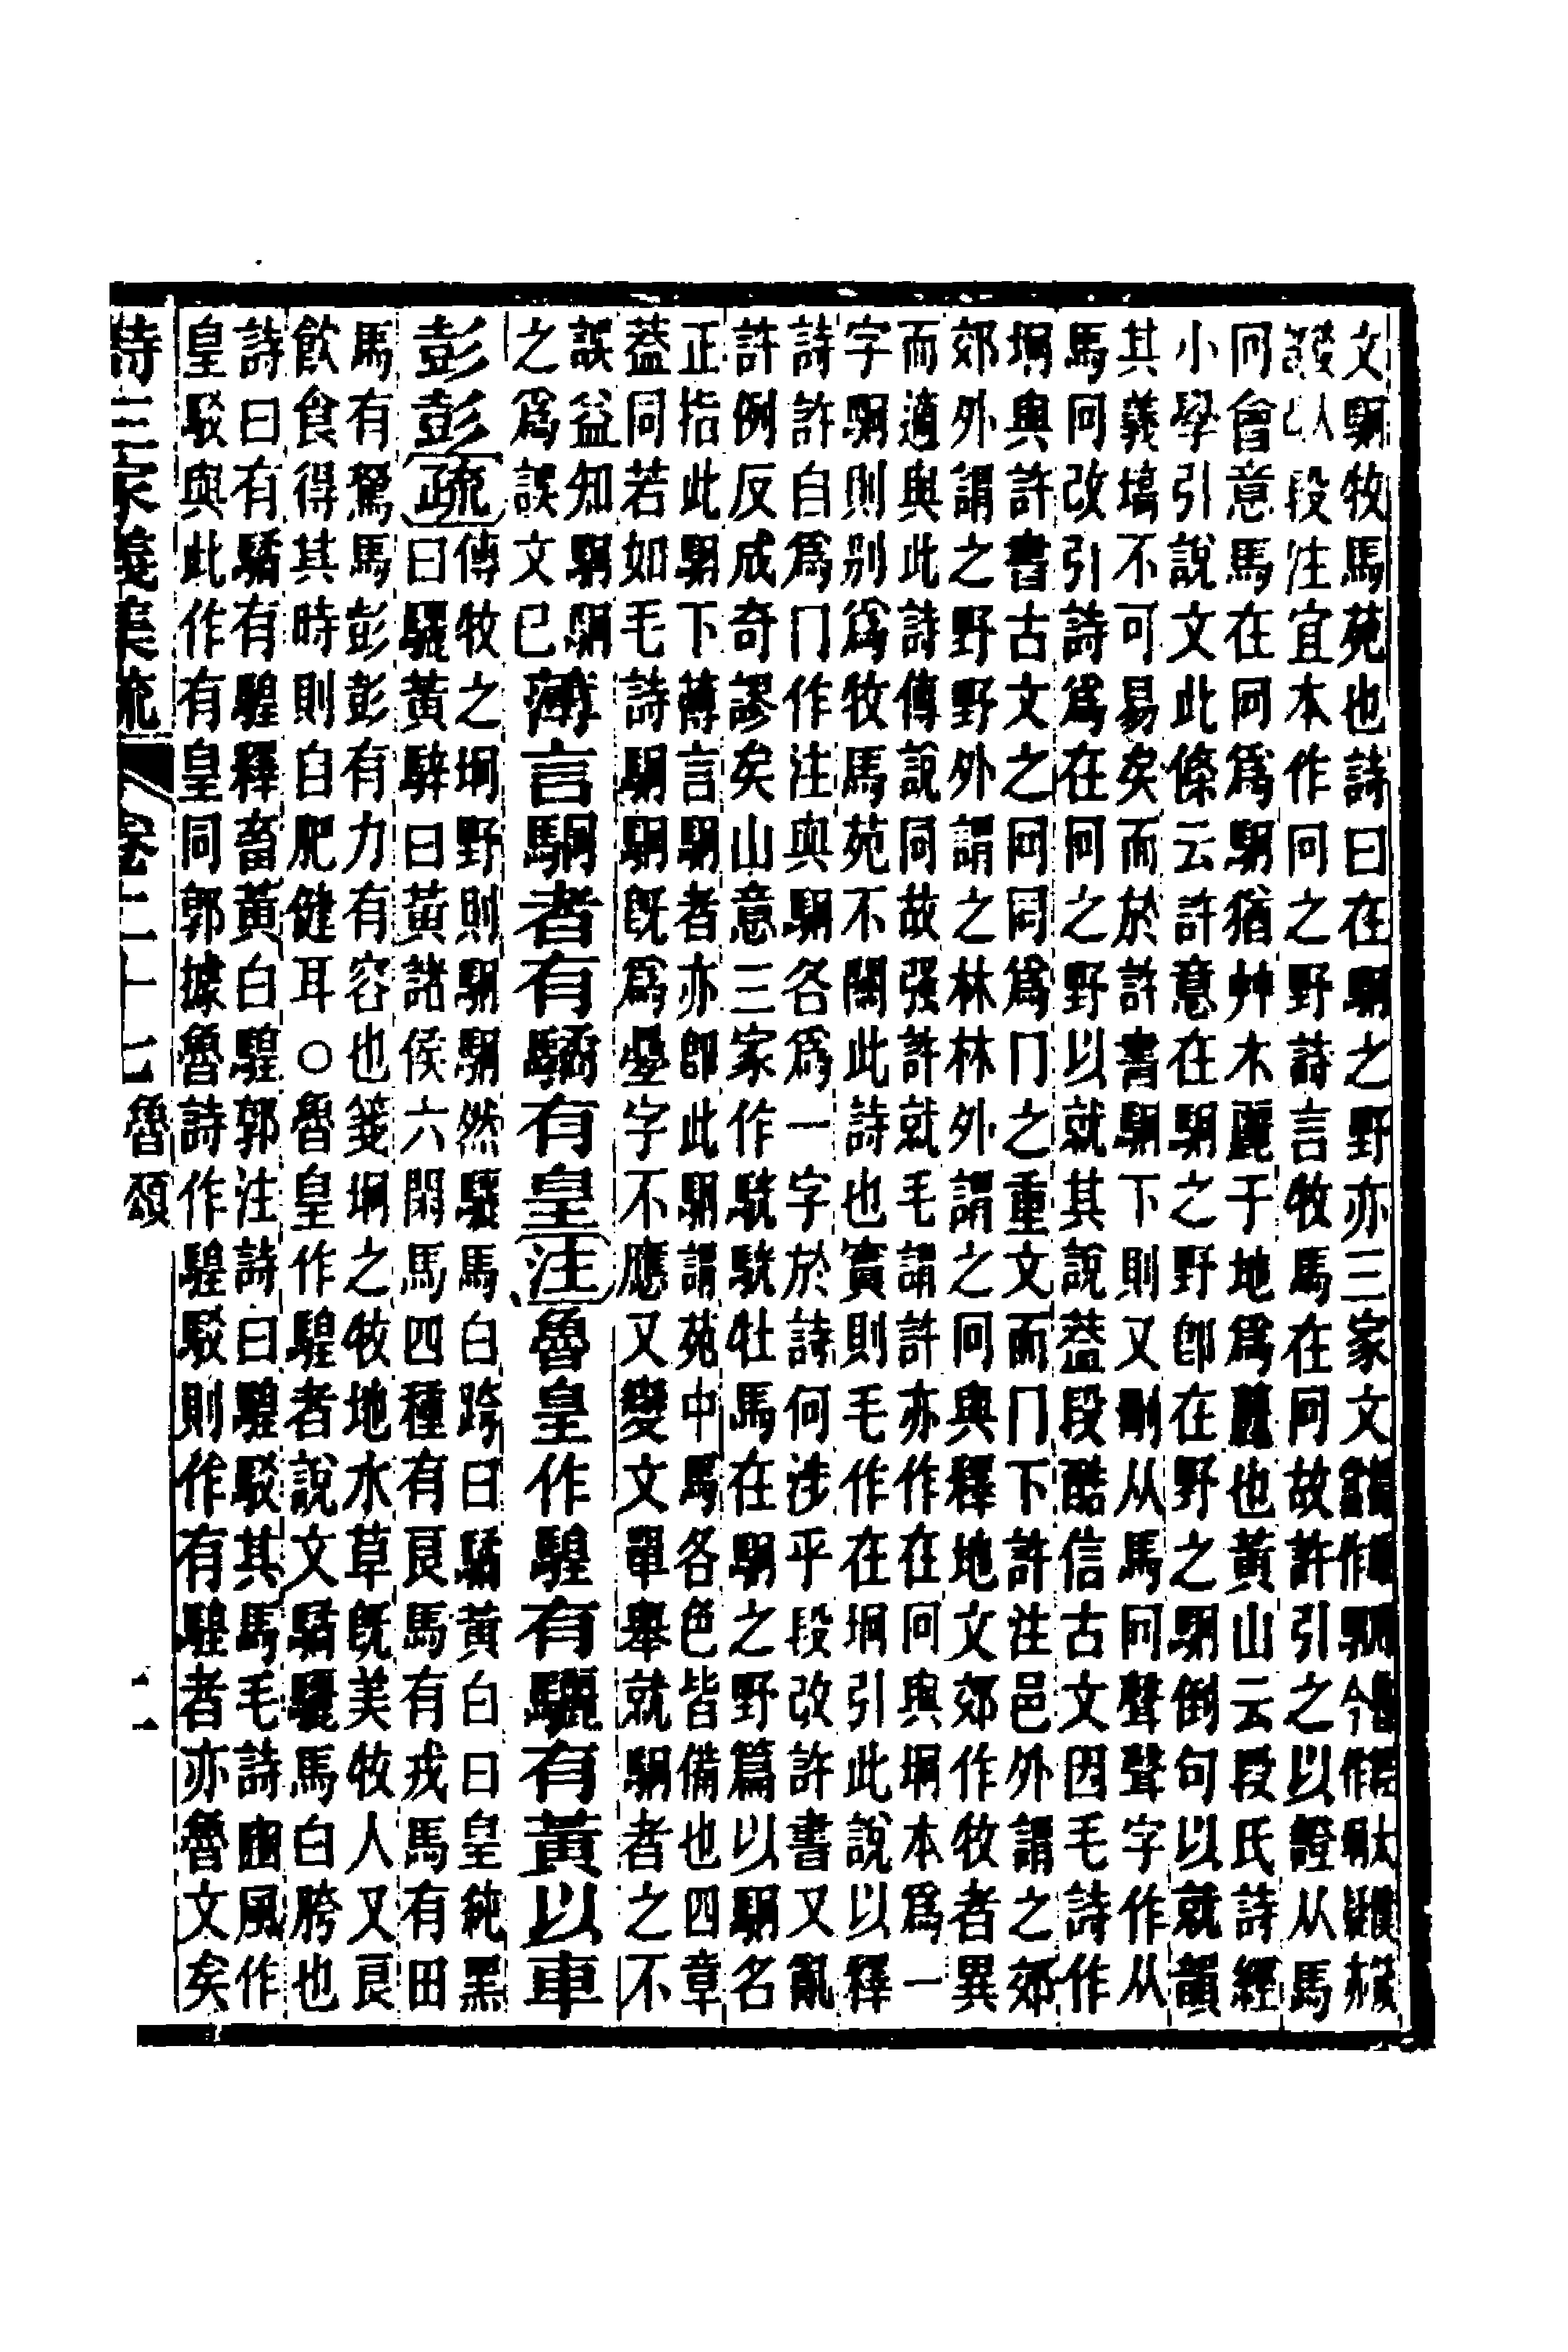 文駉牧馬苑也詩曰在駉之野亦三家文
段注宜本作冋之野詩言牧馬在冋故許引之以證从馬
冋會意馬在冋爲駉猶艸木麗于地爲麗也黃山云段氏詩經
小學引說文此條云許意在駉之野卽在野之駉倒句以就韻
其義塙不可易矣而於許書駉下則又刪从馬冋聲聲字作从
馬冋改引詩爲在冋之野以就其說葢段酷信古文因毛詩作
坰與許書古文之冋同爲冂之重文而冂下許注邑外謂之郊
郊外謂之野野外謂之林林外謂之冋與釋地文郊作牧者異
而適與此詩傳說同故强許就毛謂許亦作在冋與坰本爲一
字駉則別爲牧馬苑不關此詩也實則毛作在坰引此說以釋
詩許自爲冂作注與駉各爲一字於詩何涉乎段改許書又亂
許例反成奇謬矣山意三家作駫駫牡馬在駉之野篇以駉名
正指此駉下薄言駉者亦卽此駉謂苑中馬各色皆備也四章
葢同若如毛詩駉駉旣爲疊字不應又變文單舉就駉者之不
誤益知駉駉
之爲誤文已薄言駉者有驈有皇注魯皇作騜有驪有黃以車
彭彭疏傳牧之坰野則駉駉然驪馬白跨曰驈黃白曰皇純黑
曰驪黃騂曰黃諸侯六閑馬四種有良馬有戎馬有田
馬有駑馬彭彭有力有容也箋坰之牧地水草旣美牧人又良
飮食得其時則自肥健耳○魯皇作騜者說文驈驪馬白胯也
詩曰有驈有騜釋畜黃白騜郭注詩曰騜駁其馬毛詩豳風作
皇駁與此作有皇同郭據魯詩作騜駁則作有騜者亦魯文矣
詩三家箋集疏 卷二十七 魯頌